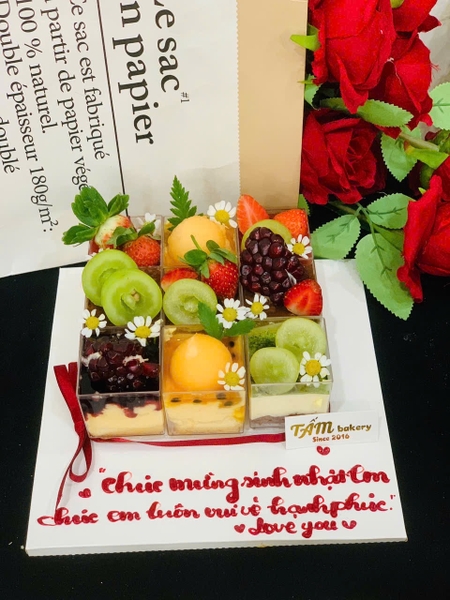 Le sac #1
en papier
Ce sac est fabriqué
à partir de papier
100 % naturel.
Double épaisseur 180g/m²:
doublé
TẤM bakery
Since 2016
"Chúc mừng sinh nhật Em
chúc em luôn vui vẻ hạnh phúc."
Love you